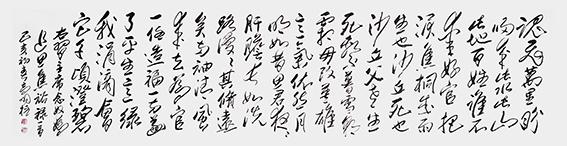 魂飞萬里盼
归来此水此山
此地百姓谁不
爱好官把
泪焦桐成雨
生也沙丘死也
沙丘父老生
死系暮雪朝
霜毋改英雄
意气依然月
明如昔思君夜夜
肝膽长如洗
路漫漫其修遠
矣两袖清風
来去為官
一任造福一方遂
了平生意绿
我涓滴會
它千顷澄碧
追思焦裕禄一首
己亥初春